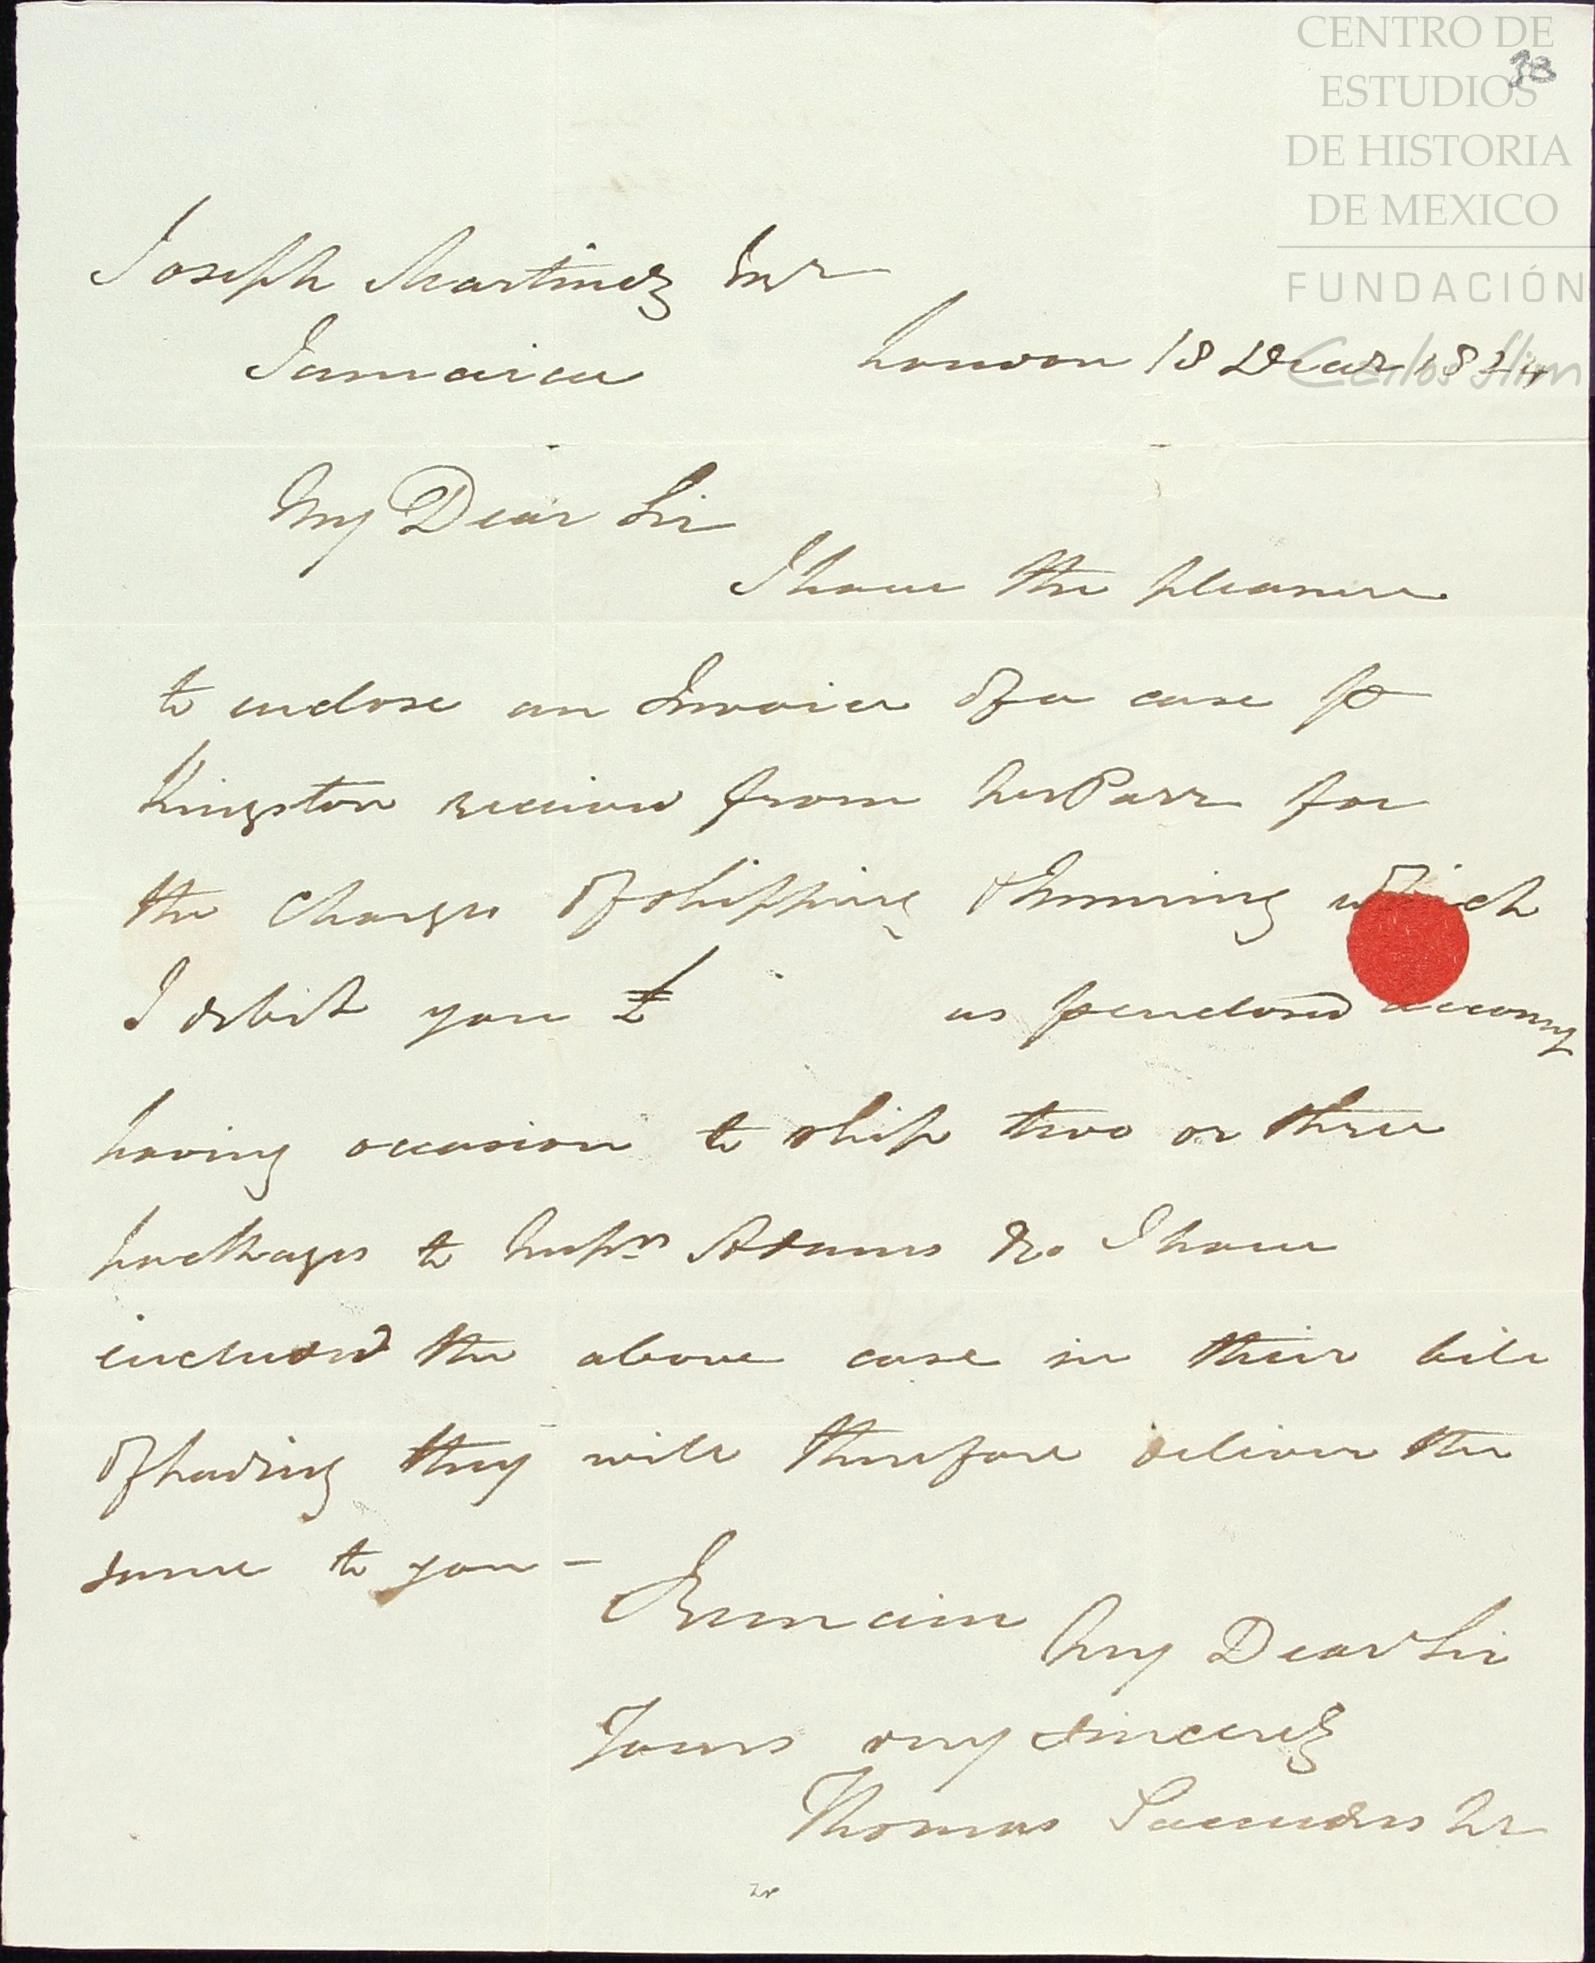 CENTRO DE
ESTUDIOS
DE HISTORIA
DE MEXICO
FUNDACIÓN
Carlos Slim
38
Joseph Martinez Esqr
Jamaica
London 18 Decr 1824
My Dear Sir
I have the pleasure
to enclose an Invoice of a case p
Kingston received from Parr for
the Charges of shipping & Insuring which
I debit you £ as p enclosed
having occasion to ship two or three
packages to Adams & Co I have
included the above case in their bill
of Lading they will therefore deliver the
same to you –
I Remain My Dear Sir
Yours very sincerely
Thomas Saunders